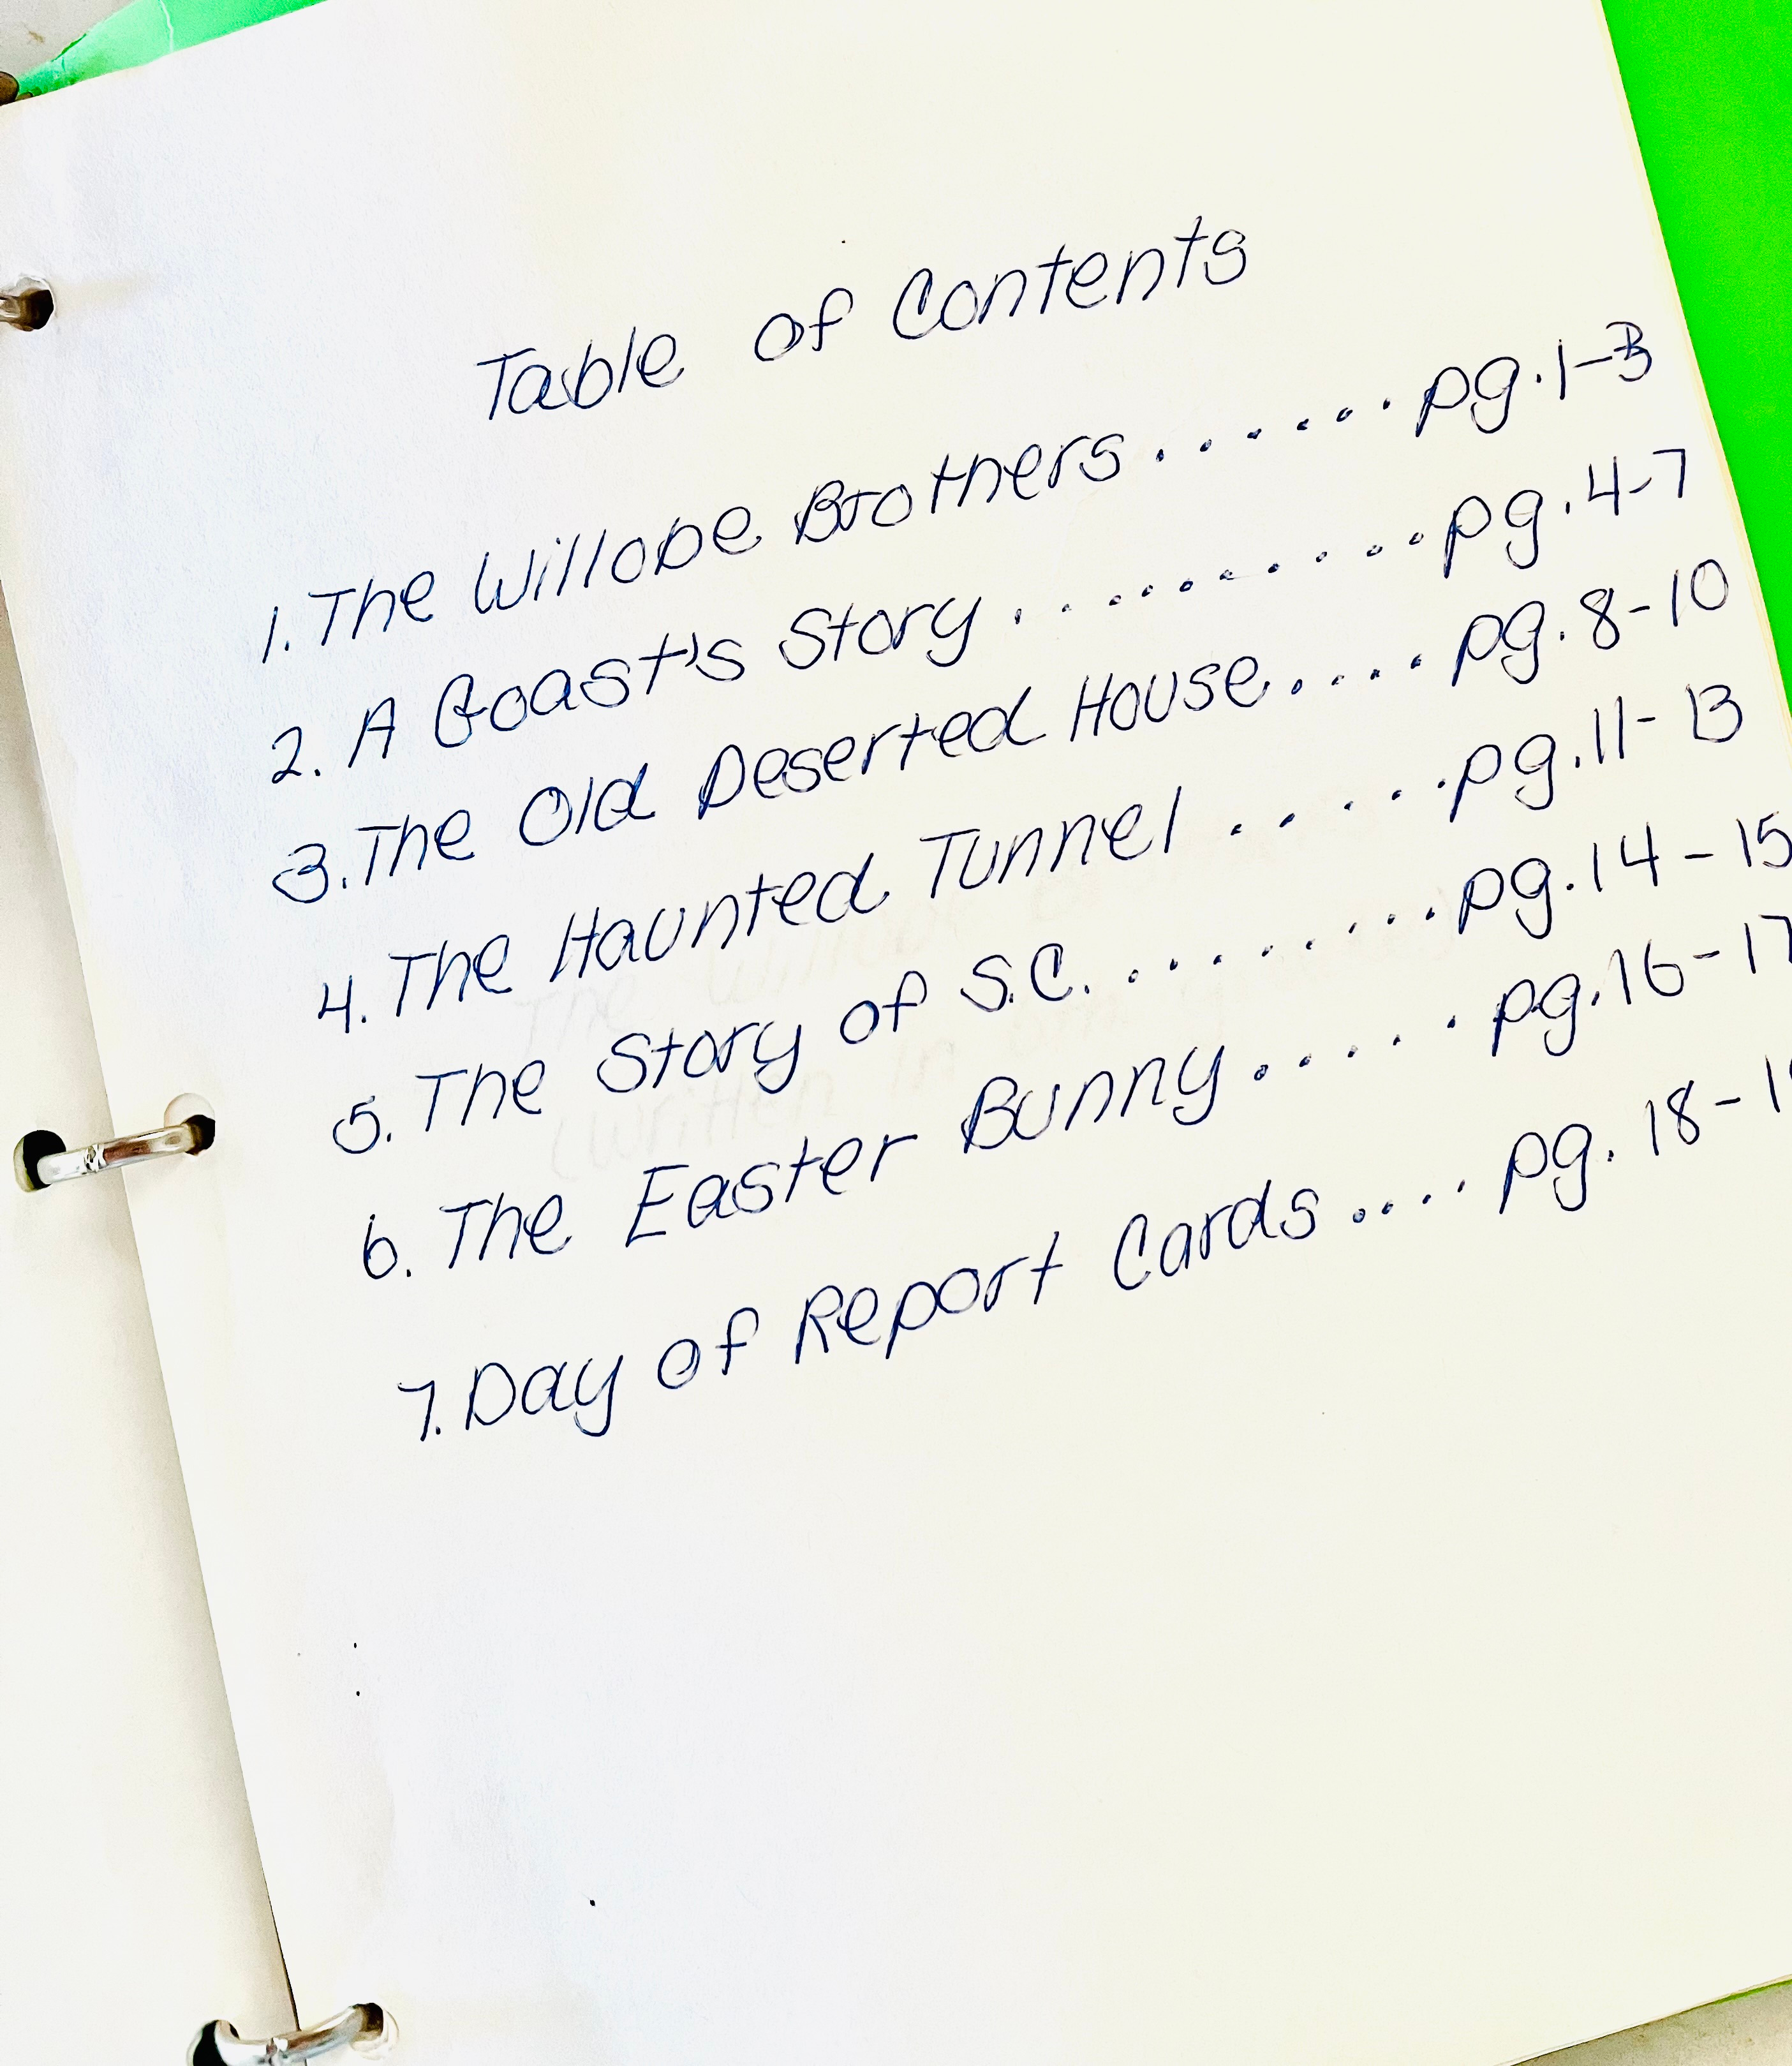 Table of Contents
1. The Willobe Brothers ...... pg. 1-3
2. A Goast's Story .......... pg. 4-7
3. The Old Deserted House .... pg. 8-10
4. The Haunted Tunnel ..... pg. 11-13
5. The Story of S.C. ......... pg. 14-15
6. The Easter Bunny ..... pg. 16-17
7. Day of Report Cards .... pg. 18-1